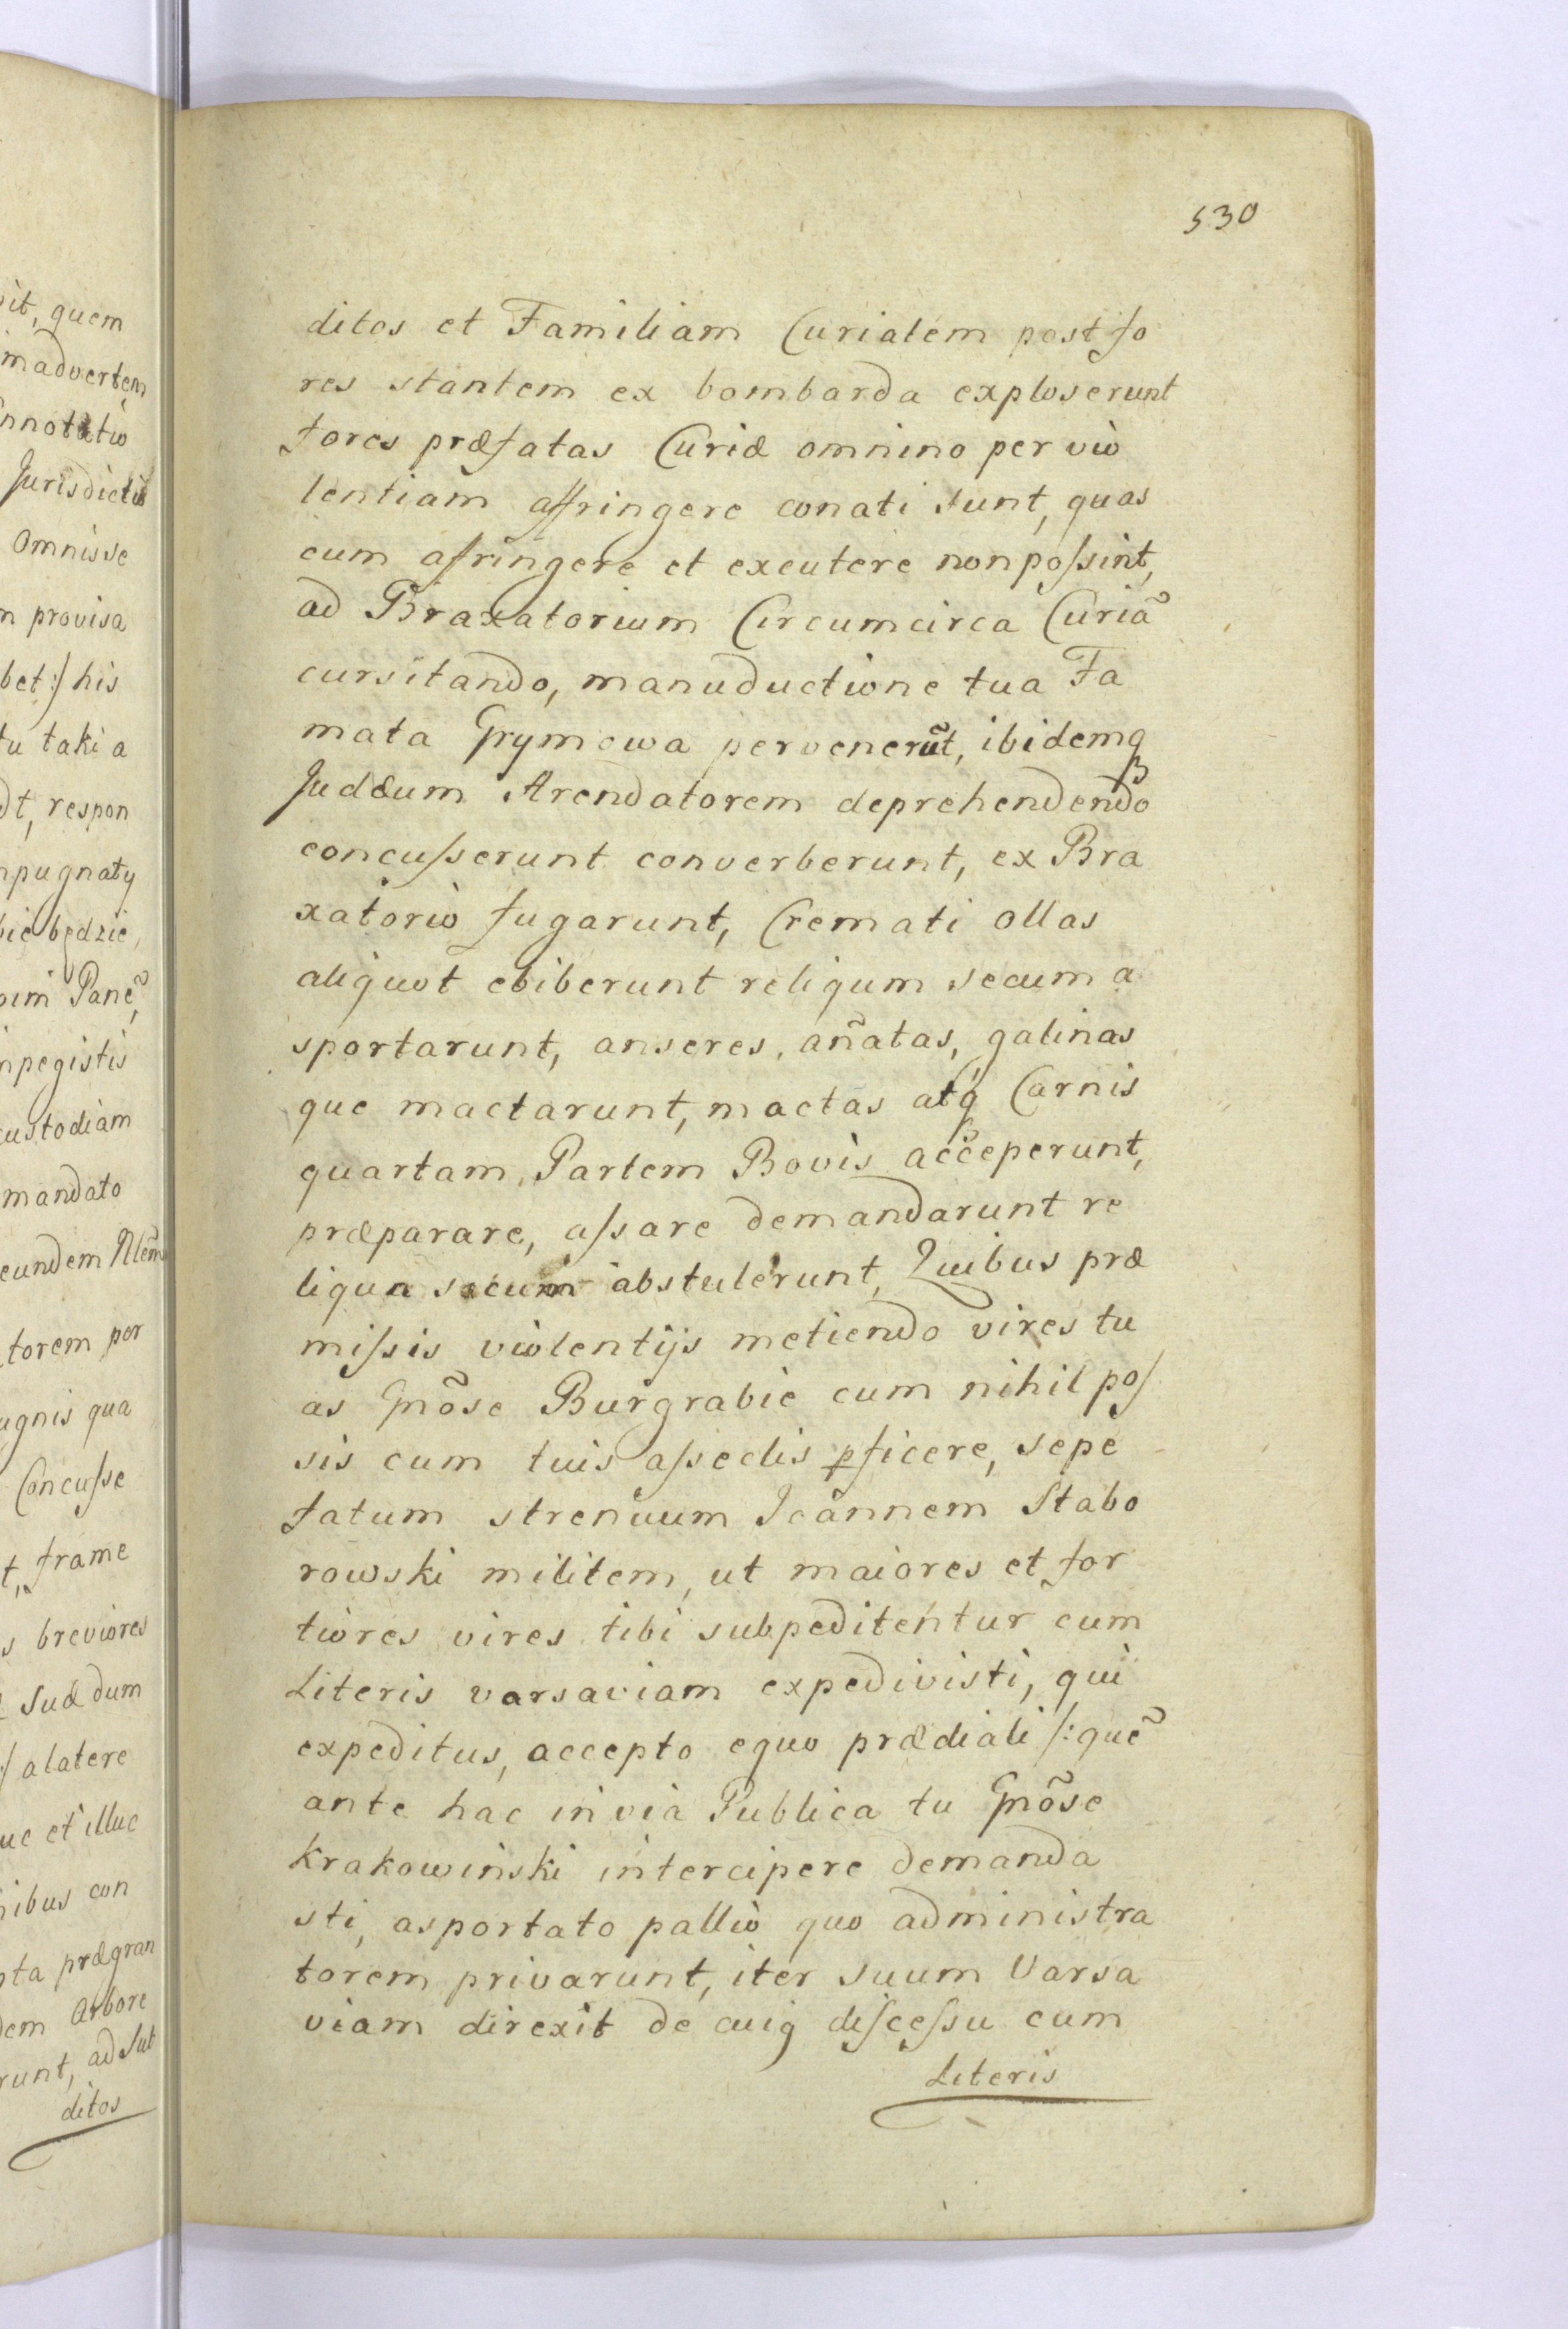 530
ditos et Familiam Curialem post fo
res stantem ex bombarda exploserunt
fores præfatas Curiæ omnino per vio
lentiam affringere conati sunt, quas
cum afringere et excutere non poſsint,
ad Braxatorium Circumcirca Curiã
cursitando, manuductione tua Fa
mata Grymowa pervenerũt, ibidemq
Judæum Arendatorem deprehendendo
concuſserunt converberunt, ex Bra
xatorio fugarunt, Cremati ollas
aliquot ebiberunt reliqum secum a
sportarunt, anseres, añatas, galinas
que mactarunt, mactas atq Carnis
quartam Partem Bovis acceperunt,
præparare, aſsare demandarunt re
liqua secum abstulerunt, Quibus præ
miſsis violentijs metiendo vires tu
as Gnõse Burgrabie cum nihil poſ
sis cum tuis aſseclis ꝑficere, sepe
fatum strenuum Joannem Stabo
rowski militem, ut maiores et for
tiores vires tibi subpeditentur cum
Literis varsaviam expedivisti, qui
expeditus, accepto equo prædiali /: quẽ
ante hac in via Publica tu Gnõse
Krakowiński intercipere demanda
sti, asportato pallio quo administra
torem privarunt, iter suum Varsa
viam direxit de cuiq diſceſsu cum
Literis
it, quem
madvertem
nnotatio
Jurisdictio
omnisse
n provisa
bet :/ his
tu taki a
dt, respon
npugnaty
bie będzie,
oim Panẽ,
npegistis
custodiam
mandato
eundem Nlẽm
torem per
ugnis qua
Concuſse
t, frame
s breviores
suæ dum
/ alatere
uc et illuc
nibus con
pta prægran
dem Arbore
runt, ad Sub
ditos